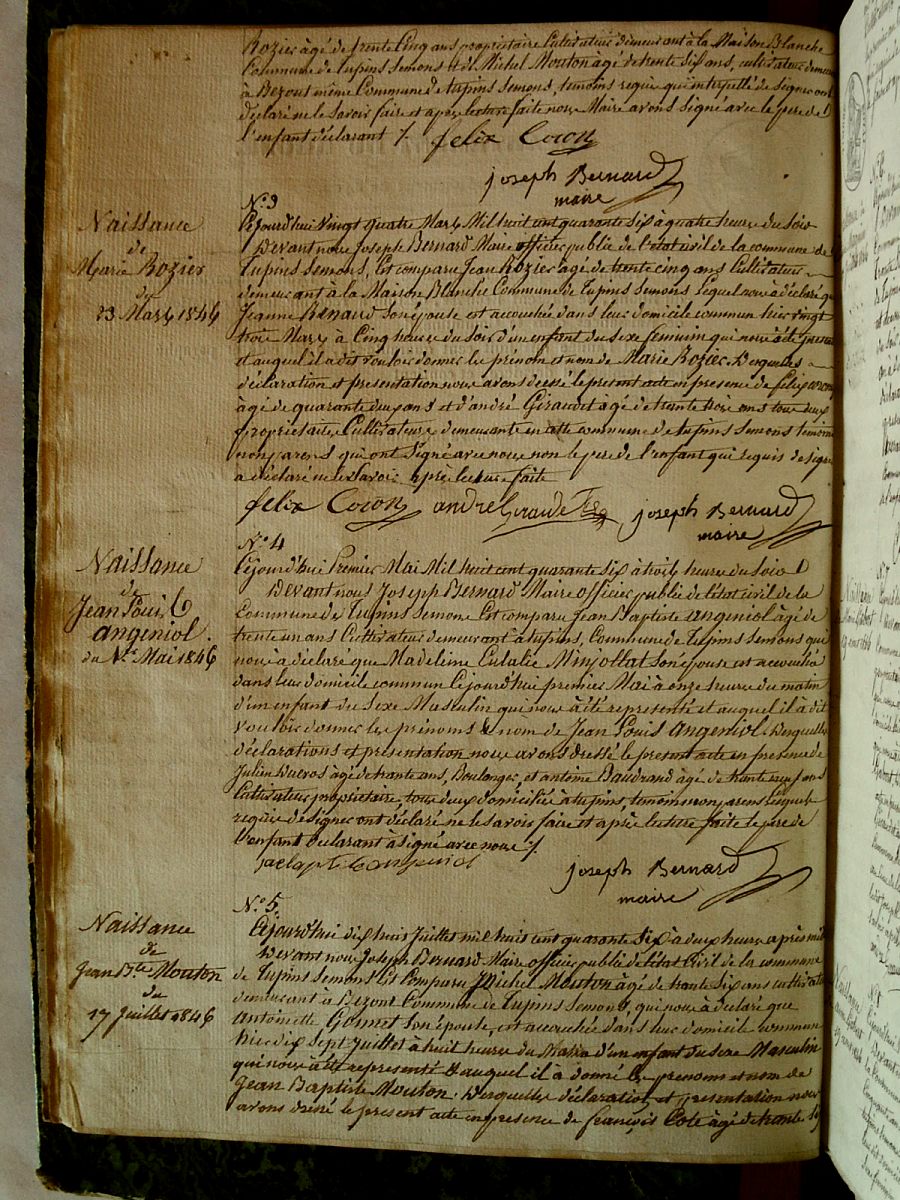 Rozier âgé de trente Cinq ans propriétaire Cultivateur demeurant à la Maison Blanche
Commune de Tupins Semons et de Michel Mouton âgé de trente Six ans, cultivateur demeu
à Bezons même Commune de tupins Semons, temoins requis qui interpellé de Signer ont
déclaré ne le Savoir faire et après lecture faite nous Maire avons Signé avec le pere de
l'enfant déclarant /. felix Coron
joseph Bernard
maire
N.º 3
Naissance
de
Marie Rozier
du
23 Mars 1846
Cejourd'hui Vingt quatre Mars Mil huit cent quarante Six à quatre heures du Soir
Devant nous Joseph Bernard Maire officier public de l'état civil de la commune de
Tupins Semons, Est comparu Jean Rozier âgé de trente cinq ans Cultivateur
demeurant à la Maison Blanche Commune de Tupins Semons Lequel nous à déclaré q
Jeanne Renaud Son épouse est accouchée dans leur domicile commun hier vingt
trois Mars à Cinq heures du Soir d'un enfant du Sexe feminin qui nous à été presen
et auquel il a dit vouloir donner les prénom et nom de Marie Rozier. Desquelles
déclaration et presentation nous avons dressé le present acte en presence de felix Coron
âgé de quarante deux ans et d'andré Giraudet âgé de trente trois ans tous deux
propriétaires Cultivateurs demeurants en cette commune de tupins Semons temoins
non parens qui ont Signé avec nous non le pere de l'enfant qui requis de Signer
a déclaré ne le Savoir après lecture faite
felix Coron andre Giraude joseph Bernard
maire
N.º 4
Naissance
de
Jean Louis
angeniol.
du 1er Mai 1846
Cejourd'hui Premier Mai Mil huit cent quarante Six à trois heures du Soir
Devant nous Joseph Bernard Maire officier public de l'état civil de la
Commune de Tupins Semons Est comparu Jean Baptiste angeniol âgé de
trente un ans Cultivateur demeurant à tupins, Commune de Tupins Semons qui
nous à déclaré que Madeleine Eulalie Minjollat Son épouse est accouchée
dans leur domicile commun Cejourd'hui premier Mai à onze heures du matin
d'un enfant du Sexe Masculin qui nous à été representé et auquel il à dit
Vouloir donner les prénoms & nom de Jean Louis angeniol. Desquelles
déclarations et présentation nous avons dressé le present acte en presence de
Julien Ducros âgé de trante ans, Boulanger, et antoine Baudrand âgé de trante ans
Cultivateur propriétaire, tous deux domiciliés à tupins, temoins non parens Lesquels
requis de Signer ont déclaré ne le Savoir faire et après lecture faite le pere de
l'enfant declarant à Signé avec nous /.
joseph Bernard
maire
N.º 5.
Naissance
de
Jean Bte Mouton
du
17 Juillet 1846
Cejourd'hui dix huit Juillet mil huit cent quarante Six à deux heures après midi
Devant nous Joseph Bernard Maire officier public de l'état civil de la commune
de Tupins Semons Est Comparu Michel Mouton âgé de trante Six ans cultivate
demeurant à Bezont Commune de Tupins Semons, qui nous à déclaré que
Antoinette Gonnet Son épouse, est accouchée dans leur domicile commun
hier dix Sept Juillet à huit heures du Matin d'un enfant du Sexe Masculin
qui nous à été representé & auquel il à donné les prenoms et nom de
Jean Baptiste Mouton. Desquelles déclaration et presentation nous
avons dressé le présent acte en presence de françois Cote âgé de trante Si